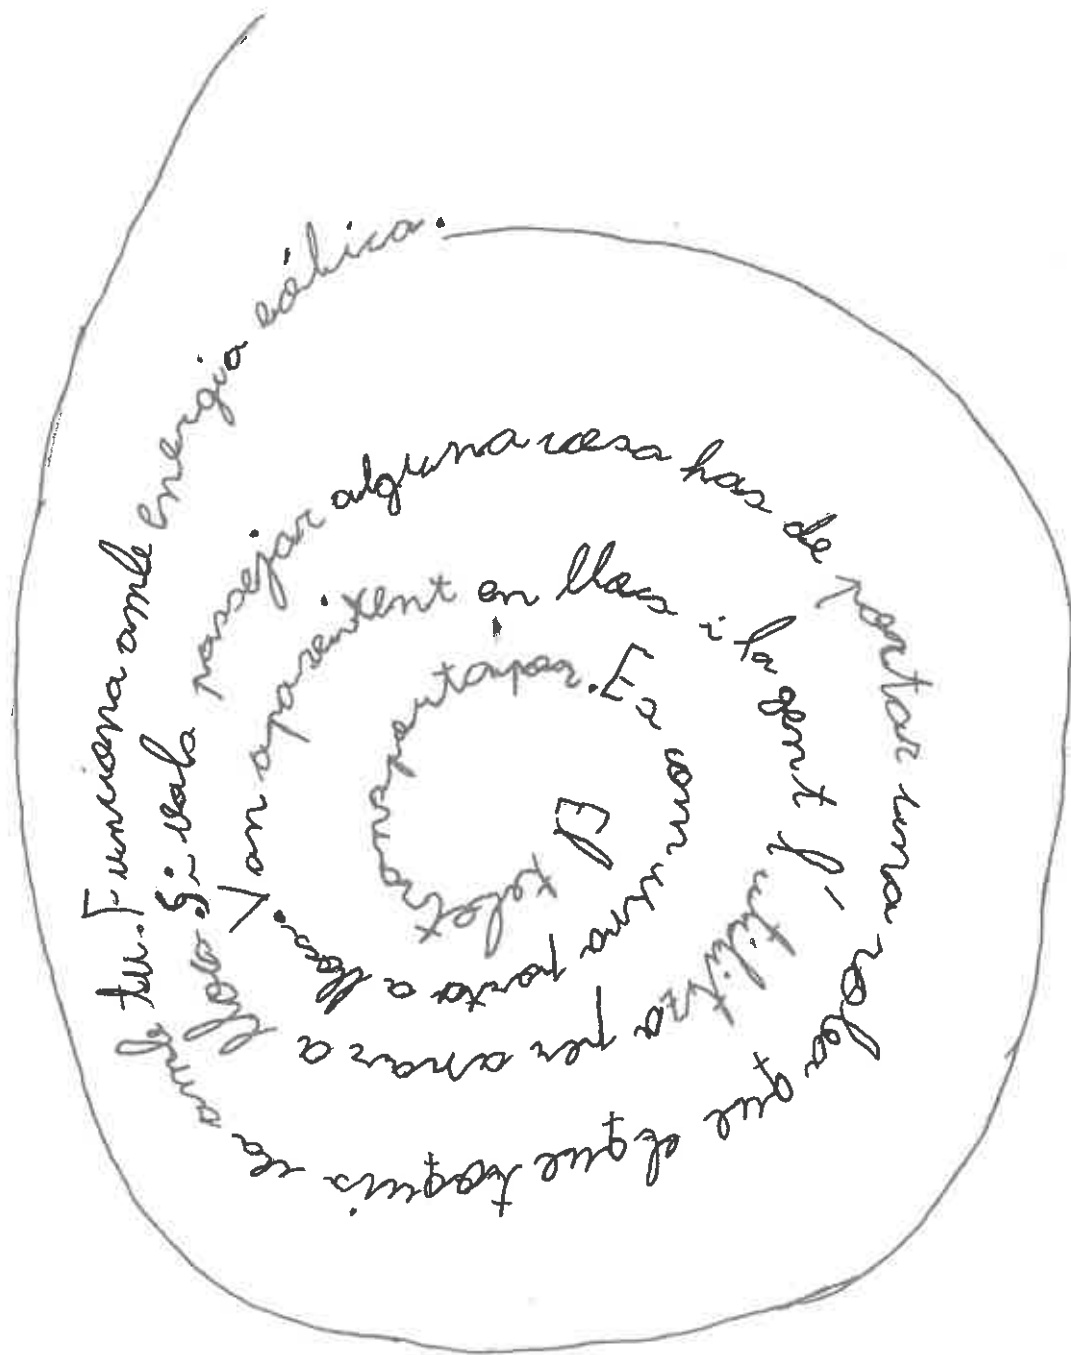 El teletransportapar. Es com una porta a llocs. Van apareixent en llocs i la gent l'utilitza per anar a llocs. Si vols passejar alguna cosa has de portar una roba que el que toquis va amb tu. Funciona amb energia eòlica.